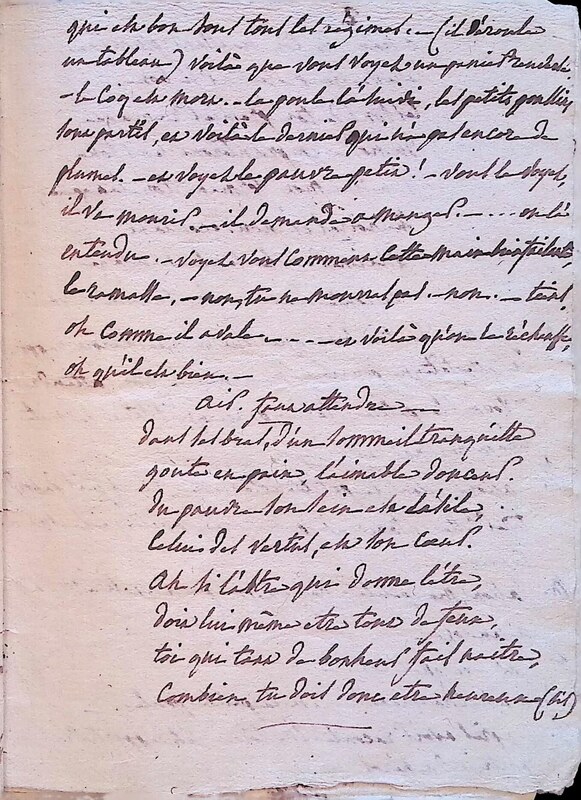 qui est bon sous tous les regimes. - (il déroule
un tableau) voilà que vous voyez un panier renversé,
- le Coq est mort. - la poule l'a suivi, les petits poullies
sont partis, et voilà le dernier qui n'a pas encore de
plumes. - et voyez le pauvre petit! - vous le voyez,
il va mourir. - il demande a manger. - . . . on l'a
entendu. - voyez vous comment cette main bienfaisante
le ramasse, - non, tu ne mourras pas. - non. - tiens,
oh comme il avale - . . . - et voilà qu'on le réchauffe,
oh qu'il est bien. -
air. faut attendre
dans les bras, d'un sommeil tranquille
goute en paix, l'aimable douceur.
du pauvre ton sein est l'asile,
Celui des vertus, est ton Cœur.
Ah si l'astre qui donne l'être,
doit lui même etre tout de feux,
toi qui tant de bonheur fais naitre,
Combien tu dois donc etre heureux (bis)